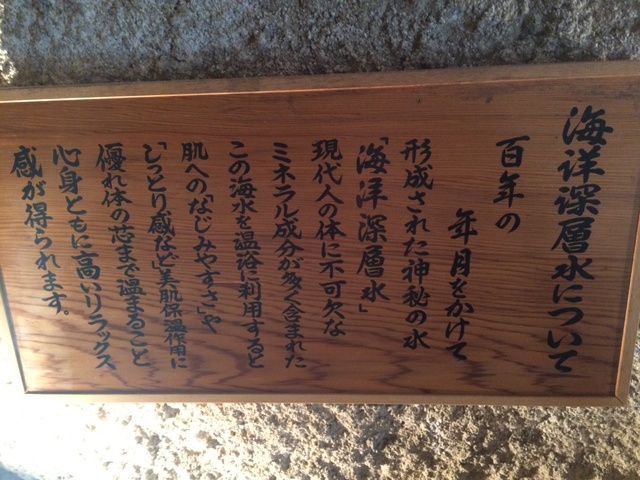 海洋深層水について
百年の
年月をかけて
形成された神秘の水
「海洋深層水」
現代人の体に不可欠な
ミネラル成分が多く含まれた
この海水を温浴に利用すると
肌への「なじみやすさ」や
「しっとり感など」美肌保温作用に
優れ体の芯まで温まること、
心身ともに高いリラックス
感が得られます。